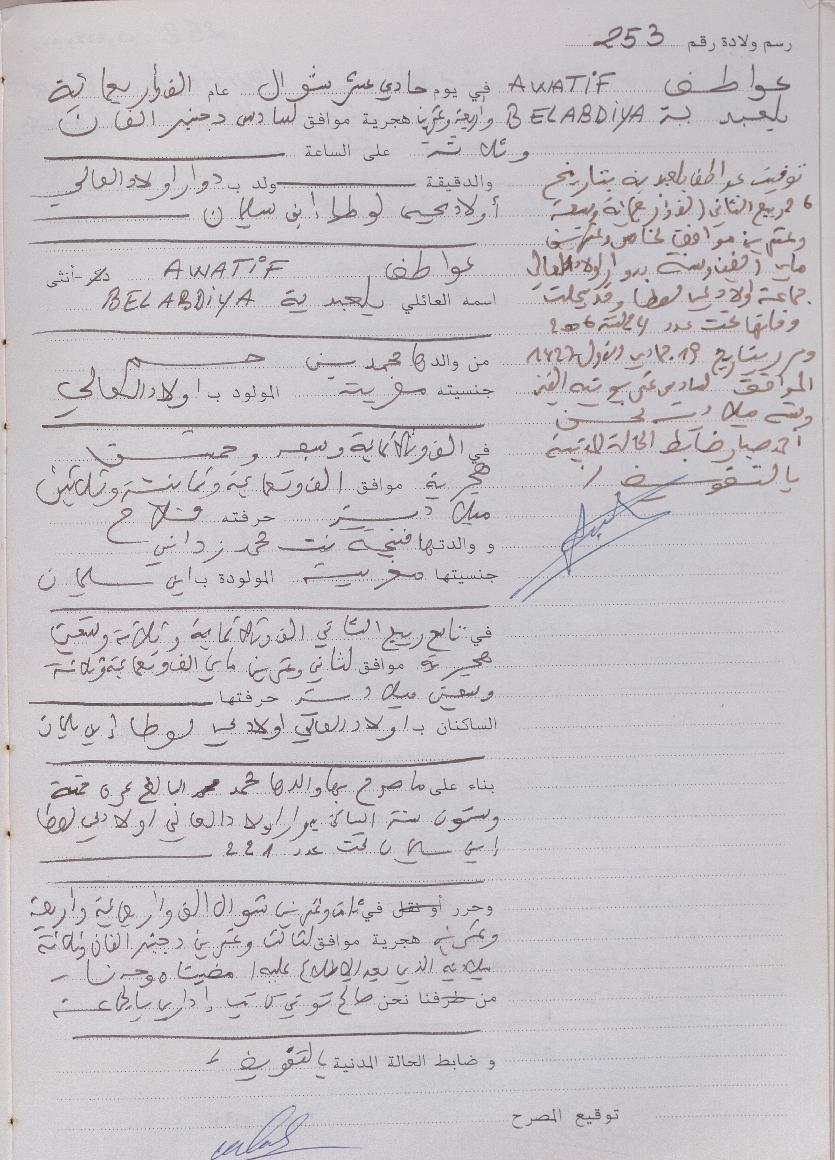 رسم ولادة رقم 253
عواطف AWATIF
بلعبدية BELABDIYA
في يوم حادي عشر شوال عام الف وأربعمائة
وأربعة وعشرين هجرية موافق لسادس دجنبر الفان
وثلاثة على الساعة
والدقيقة ولد ب دوار اولاد العالي
أولاد يحيى لوطا ابن سليمان
عواطف AWATIF ذكر-أنثى
اسمه العائلي بلعبدية BELABDIYA
من والدها محمد بن
جنسيته مغربية المولود ب اولاد العالي
في الف وثلاثمائة وسبعة وخمسين
هجرية موافق الف وتسعمائة وثمانية وثلاثين
ميلادية حرفته فلاح
و والدتها فتيحة بنت محمد
جنسيتها مغربية المولودة ب ابن سليمان
في تاسع ربيع الثاني الف وثلاثمائة وثلاثة وتسعين
هجرية موافق لثاني وعشرين ماي الف وتسعمائة وثلاثة
وسبعين ميلادية حرفتها
الساكنان ب اولاد العالي اولاد يحيى لوطا ابن سليمان
بناء على ما صرح به والدها محمد البالغ عمره خمسة
وستون سنة الساكن بدوار اولاد العالي اولاد يحيى لوطا
ابن سليمان تحت عدد 221
وحرر أو نقل في ثامن وعشرين شوال الف وأربعمائة وأربعة
وعشرين هجرية موافق لثالث وعشرين دجنبر الفان وثلاثة
ميلادية الذي بعد الاطلاع عليه
من طرفنا نحن صالح كاتب إداري بالجماعة
و ضابط الحالة المدنية بالتفويض
توقيع المصرح
توفيت عواطف بلعبدية بتاريخ
26 ربيع الثاني الف وأربعمائة وسبعة
وعشرين موافق لخامس وعشرين
ماي الفين وستة بدوار اولاد العالي
جماعة اولاد يحيى لوطا وقد سجلت
وفاتها تحت عدد 24 لسنة 2006
وحرر بتاريخ 19 جمادى الأولى 1427
الموافق لسادس عشر يونيه الفين
وستة ميلادية نحن
أحمد صبار ضابط الحالة المدنية
بالتفويض